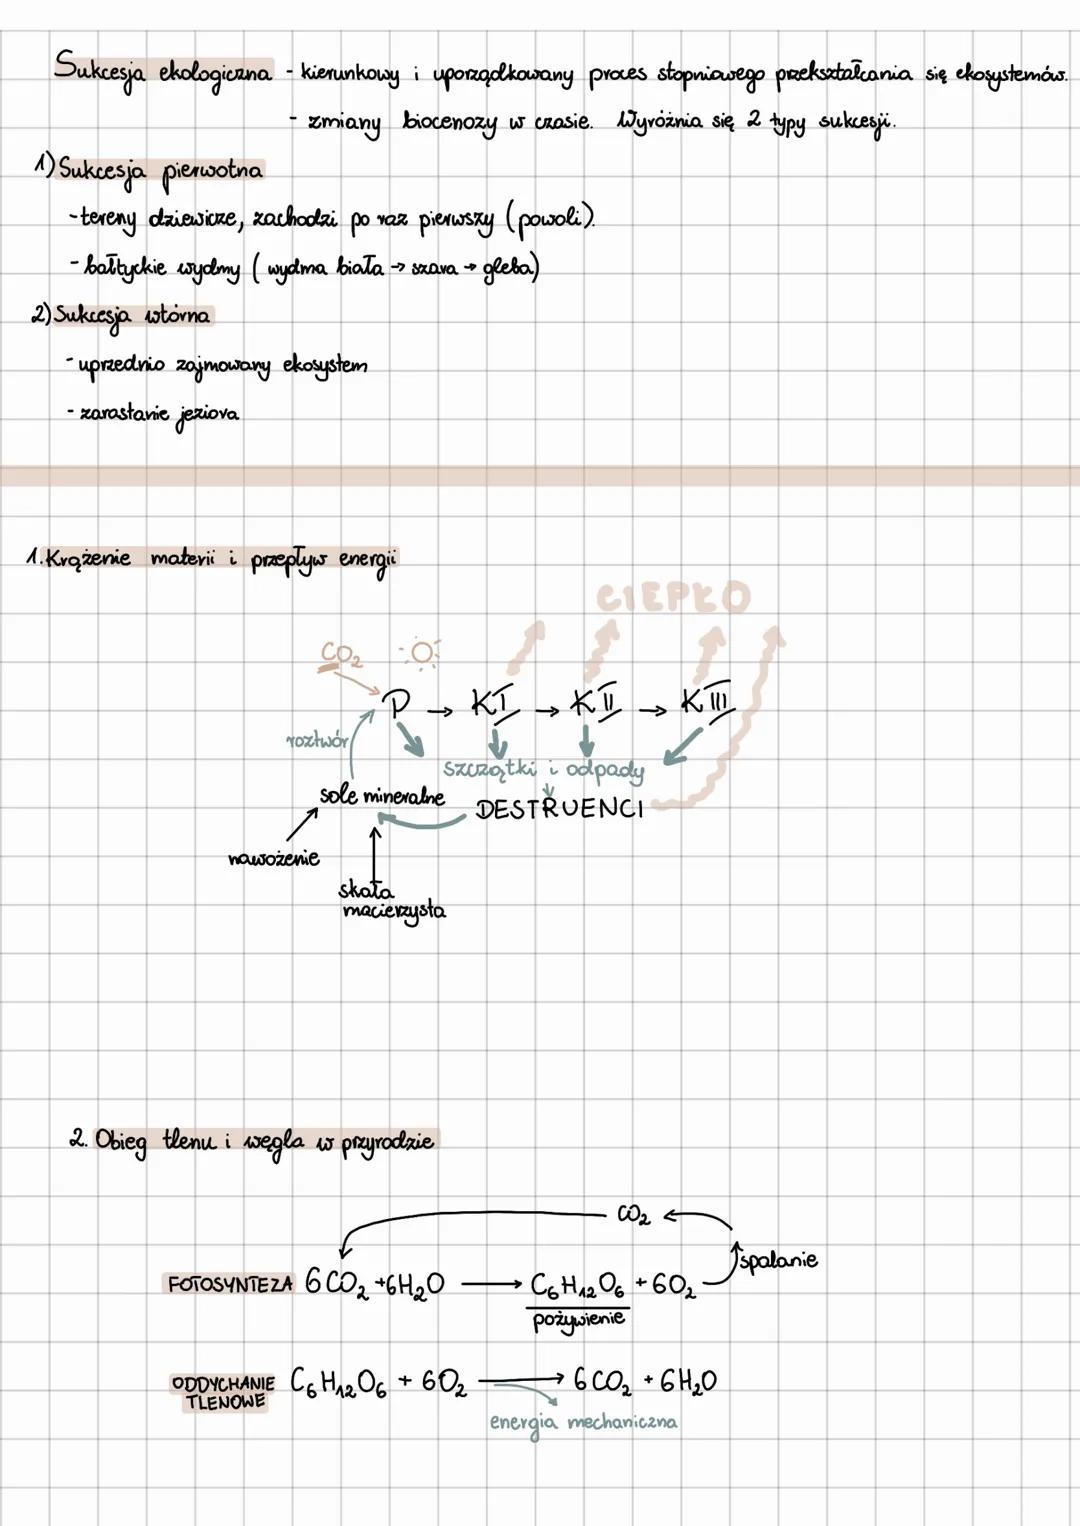 Sukcesja ekologiczna - kierunkowy i uporządkowany proces stopniowego przekształcania się ekosystemów.
- zmiany biocenozy w czasie. Wyróżnia się 2 typy sukcesji.
1) Sukcesja pierwotna
- tereny dziewicze, zachodzi po raz pierwszy (powoli).
- bałtyckie wydmy (wydma biała → szara → gleba)
2) Sukcesja wtórna
- uprzednio zajmowany ekosystem
- zarastanie jeziora
1. Krążenie materii i przepływ energii
CIEPŁO
CO₂
P → KI → KII → KIII
roztwór
szczątki i odpady
sole mineralne
DESTRUENCI
nawożenie
skała
macierzysta
2. Obieg tlenu i węgla w przyrodzie
CO₂
spalanie
FOTOSYNTEZA 6CO₂ + 6H₂O → C₆H₁₂O₆ + 6O₂
pożywienie
ODDYCHANIE TLENOWE C₆H₁₂O₆ + 6O₂ → 6CO₂ + 6H₂O
energia mechaniczna